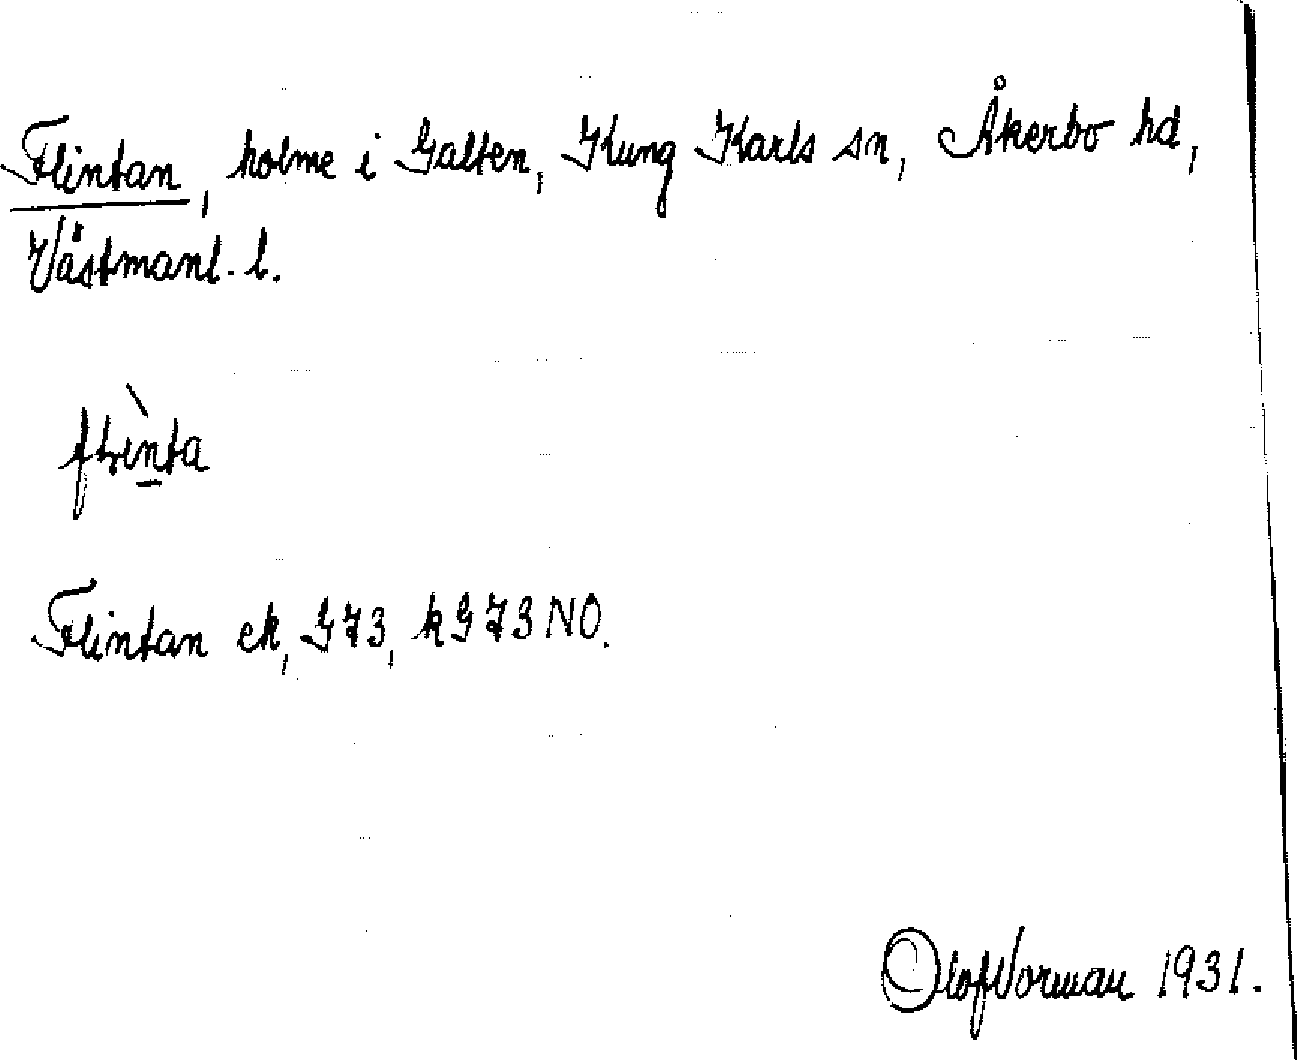 Flintan, holme i Galten, Kung Karls sn, Åkerbo hd,
Västmanl. l.
flìnta
Flintan ek, G73, kG73NO.
Olof Norman 1931.